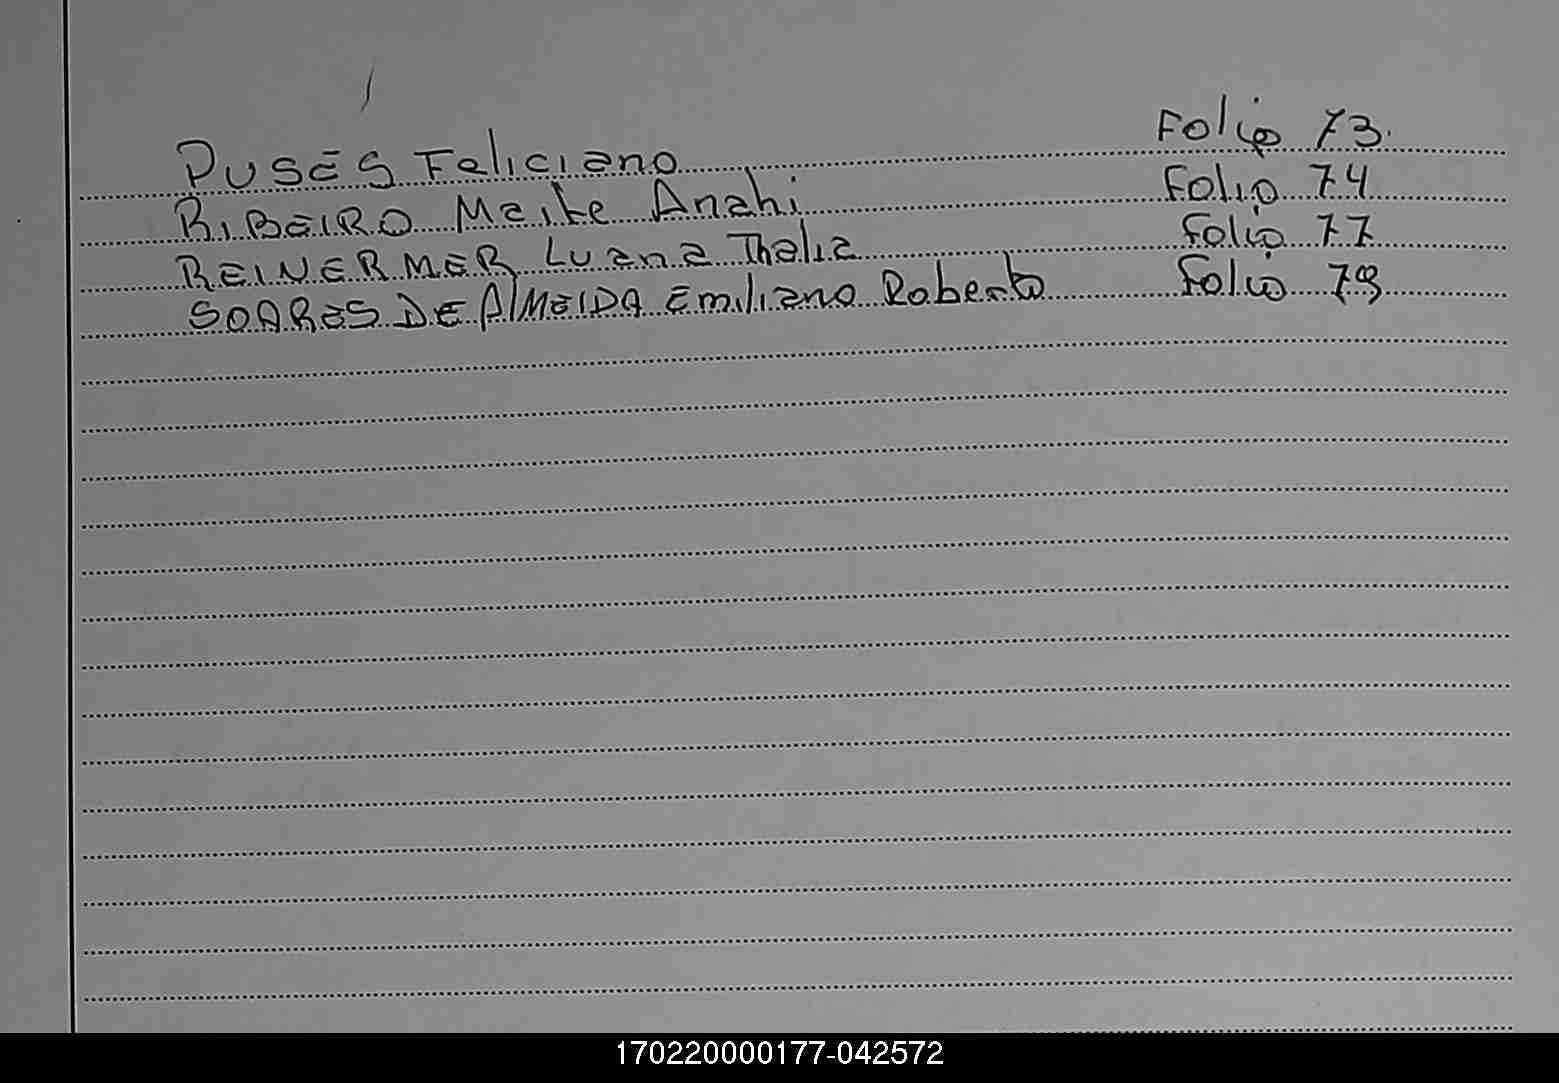 PUSES Feliciano Folio 73
RIBEIRO Maite Anahi Folio 74
REINERMER Luana Thalia Folio 77
SOARES DE AlMEIDA Emiliano Roberto Folio
170220000177-042572